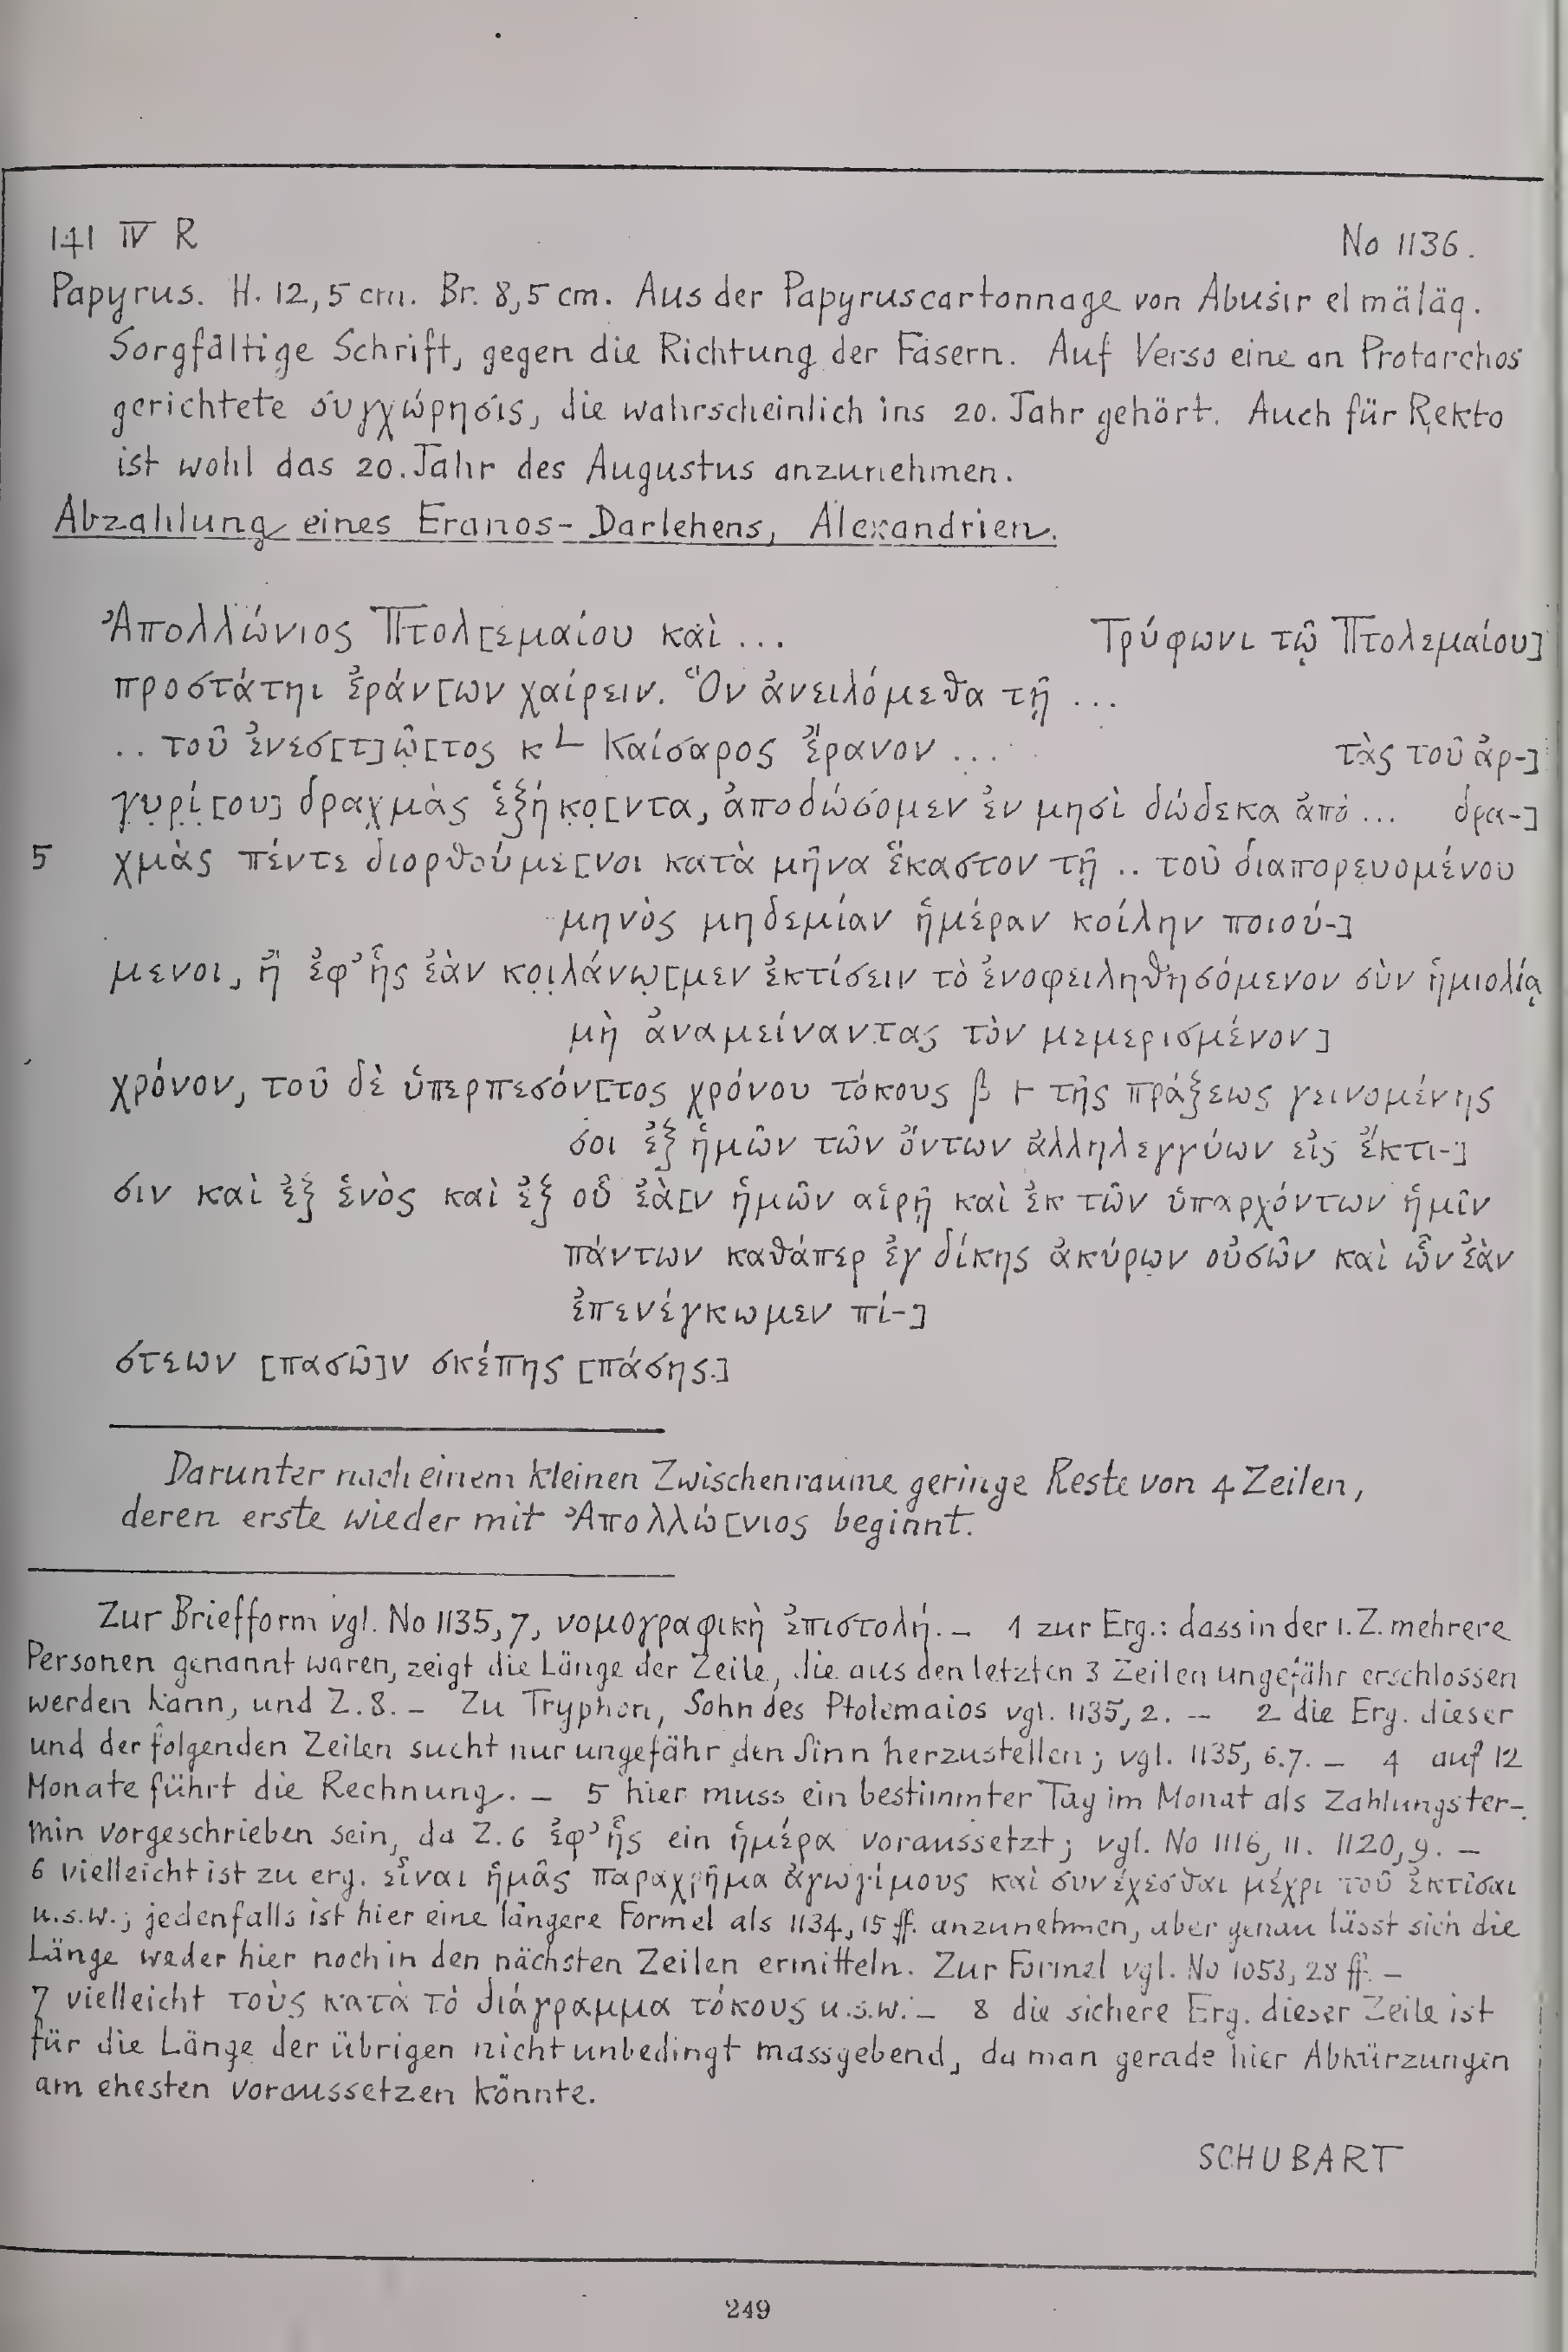 141 IV R No 1136.
Papyrus. H. 12,5 cm. Br. 8,5 cm. Aus der Papyruscartonnage von Abuṣir el mäläq.
Sorgfältige Schrift, gegen die Richtung der Fasern. Auf Verso eine an Protarchos
gerichtete συγχώρησις, die wahrscheinlich ins 20. Jahr gehört. Auch für Rekto
ist wohl das 20. Jahr des Augustus anzunehmen.
Abzahlung eines Eranos-Darlehens, Alexandrien.
Ἀπολλώνιος Πτολ[εμαίου καὶ ... Τρύφωνι τῷ Πτολεμαίου]
προστάτηι ἐράν[ων χαίρειν. Ὃν ἀνειλόμεθα τῇ ...
.. τοῦ ἐνεσ[τ]ῶ̣[τος κ└ Καίσαρος ἔρανον ... τὰς τοῦ ἀρ-]
γ̣υ̣ρ̣ί̣[ου] δραχμὰς ἑξήκ̣ο̣[ντα, ἀποδώσομεν ἐν μησὶ δώδεκα ἀπὸ ... δρα-]
5 χμὰς πέντε διορθούμε[νοι κατὰ μῆνα ἕκαστον τῇ .. τοῦ διαπορευομένου
μηνὸς μηδεμίαν ἡμέραν κοίλην ποιού-]
μενοι, ἢ ἐφ’ ἧς ἐὰν κο̣ι̣λάνω̣[μεν ἐκτίσειν τὸ ἐνοφειληθησόμενον σὺν ἡμιολίᾳ
μὴ ἀναμείναντας τὸν μεμερισμένον]
χρόνον, τοῦ δὲ ὑπερπεσόν[τος χρόνου τόκους β ⊢ τῆς πράξεως γεινομένης
σοι ἐξ ἡμῶν τῶν ὄντων ἀλληλεγγύων εἰς ἔκτι-]
σιν καὶ ἐξ ἑνὸς καὶ ἐξ οὗ ἐὰ[ν ἡμῶν αἱρῇ καὶ ἐκ τῶν ὑπαρχόντων ἡμῖν
πάντων καθάπερ ἐγ δίκης ἀκύρων οὐσῶν καὶ ὧν ἐὰν
ἐπενέγκωμεν πί-]
στεων [πασῶ]ν σκέπης [πάσης.]
Darunter nach einem kleinen Zwischenraume geringe Reste von 4 Zeilen,
deren erste wieder mit Ἀπολλώ[νιος beginnt.
Zur Briefform vgl. No 1135, 7, νομογραφικὴ ἐπιστολή. — 1 zur Erg.: dass in der 1. Z. mehrere
Personen genannt waren, zeigt die Länge der Zeile, die aus den letzten 3 Zeilen ungefähr erschlossen
werden kann, und Z. 8. — Zu Tryphon, Sohn des Ptolemaios vgl. 1135, 2. — 2 die Erg. dieser
und der folgenden Zeilen sucht nur ungefähr den Sinn herzustellen; vgl. 1135, 6.7. — 4 auf 12
Monate führt die Rechnung. — 5 hier muss ein bestimmter Tag im Monat als Zahlungster-
min vorgeschrieben sein, da Z. 6 ἐφ’ ἧς ein ἡμέρα voraussetzt; vgl. No 1116, 11. 1120, 9. —
6 vielleicht ist zu erg. εἶναι ἡμᾶς παραχρῆμα ἀγωγίμους καὶ συνέχεσθαι μέχρι τοῦ ἐκτῖσαι
u.s.w.; jedenfalls ist hier eine längere Formel als 1134, 15 ff. anzunehmen, aber genau lässt sich die
Länge weder hier noch in den nächsten Zeilen ermitteln. Zur Formel vgl. No 1053, 28 ff. —
7 vielleicht τοὺς κατὰ τὸ διάγραμμα τόκους u.s.w. — 8 die sichere Erg. dieser Zeile ist
für die Länge der übrigen nicht unbedingt massgebend, da man gerade hier Abkürzungen
am ehesten voraussetzen könnte.
SCHUBART
249